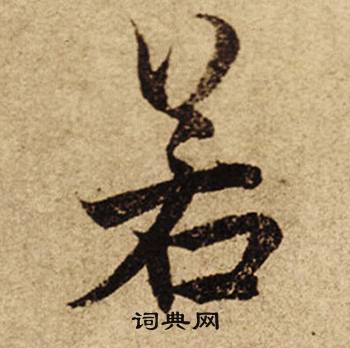 若
词典网